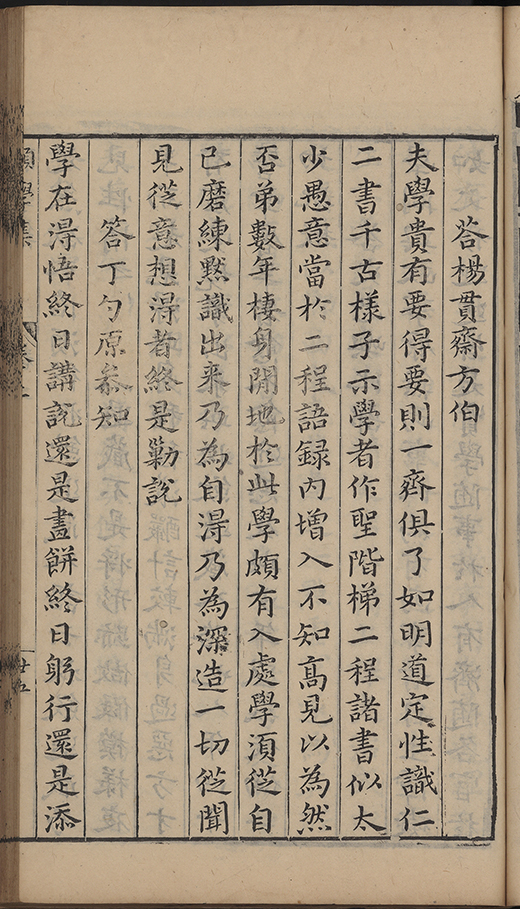 答楊貫齋方伯
夫學貴有要得要則一齊俱了如明道定性識仁
二書千古様子示學者作聖階梯二程諸書似太
少愚意當於二程語録内增入不知髙見以為然
否弟數年棲身閒地於此學頗有入處學須從自
己磨練黙識出来乃為自得乃為深造一切從聞
見從意想得者終是勦說
答丁勺原叅知
學在得悟終日講說還是畫餅終日躬行還是添
學集
廿五